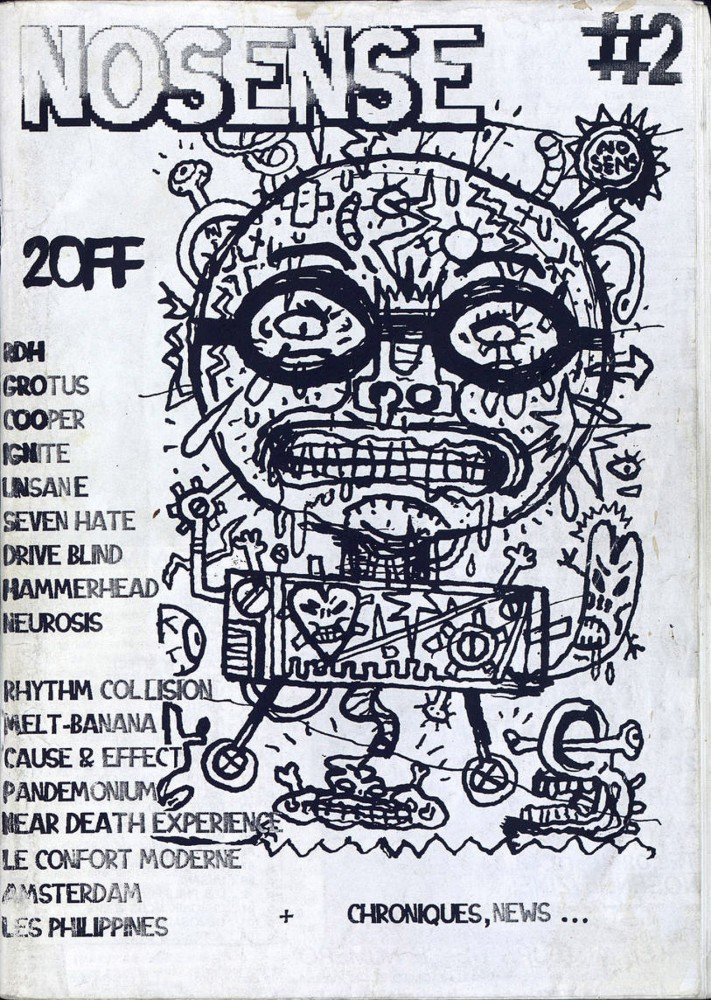 NOSENSE #2
NO
SENS
20FF
RDH
GROTUS
COOPER
IGNITE
UNSANE
SEVEN HATE
DRIVE BLIND
HAMMERHEAD
NEUROSIS
RHYTHM COLLISION
MELT-BANANA
CAUSE & EFFECT
PANDEMONIUM
NEAR DEATH EXPERIENCE
LE CONFORT MODERNE
AMSTERDAM
LES PHILIPPINES
+ CHRONIQUES, NEWS ...